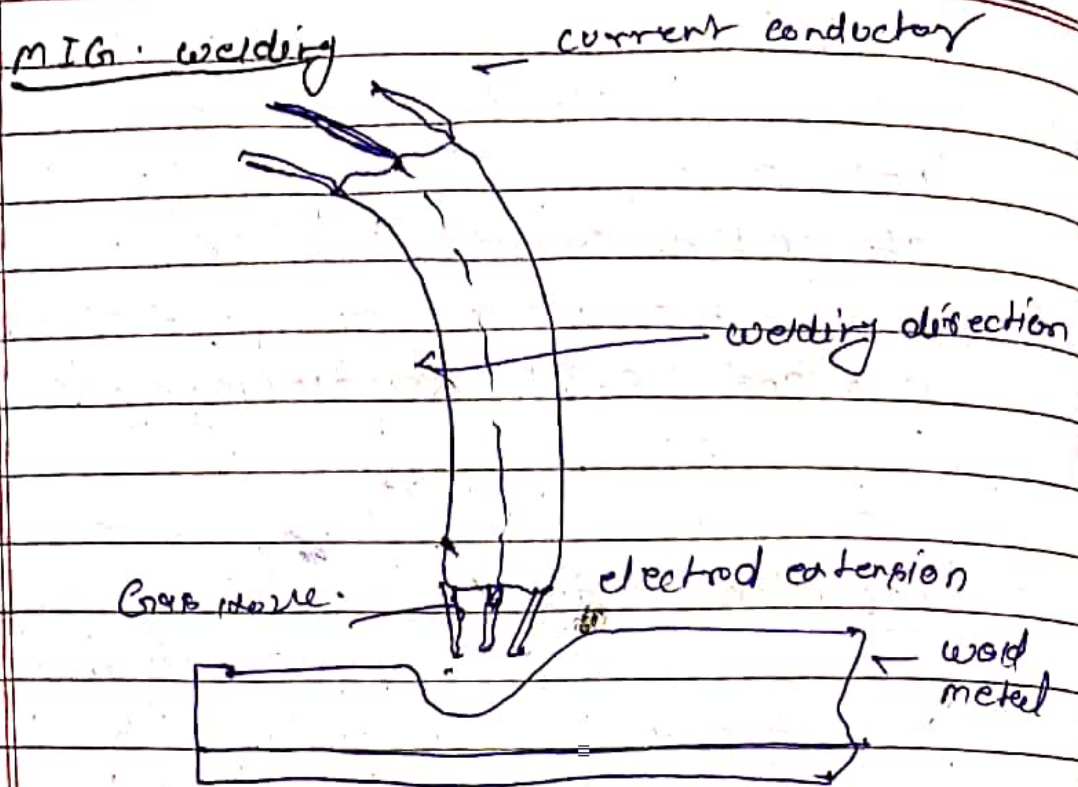 MIG. welding
current conductor
welding direction
electrod extension
Gas
wold
metel